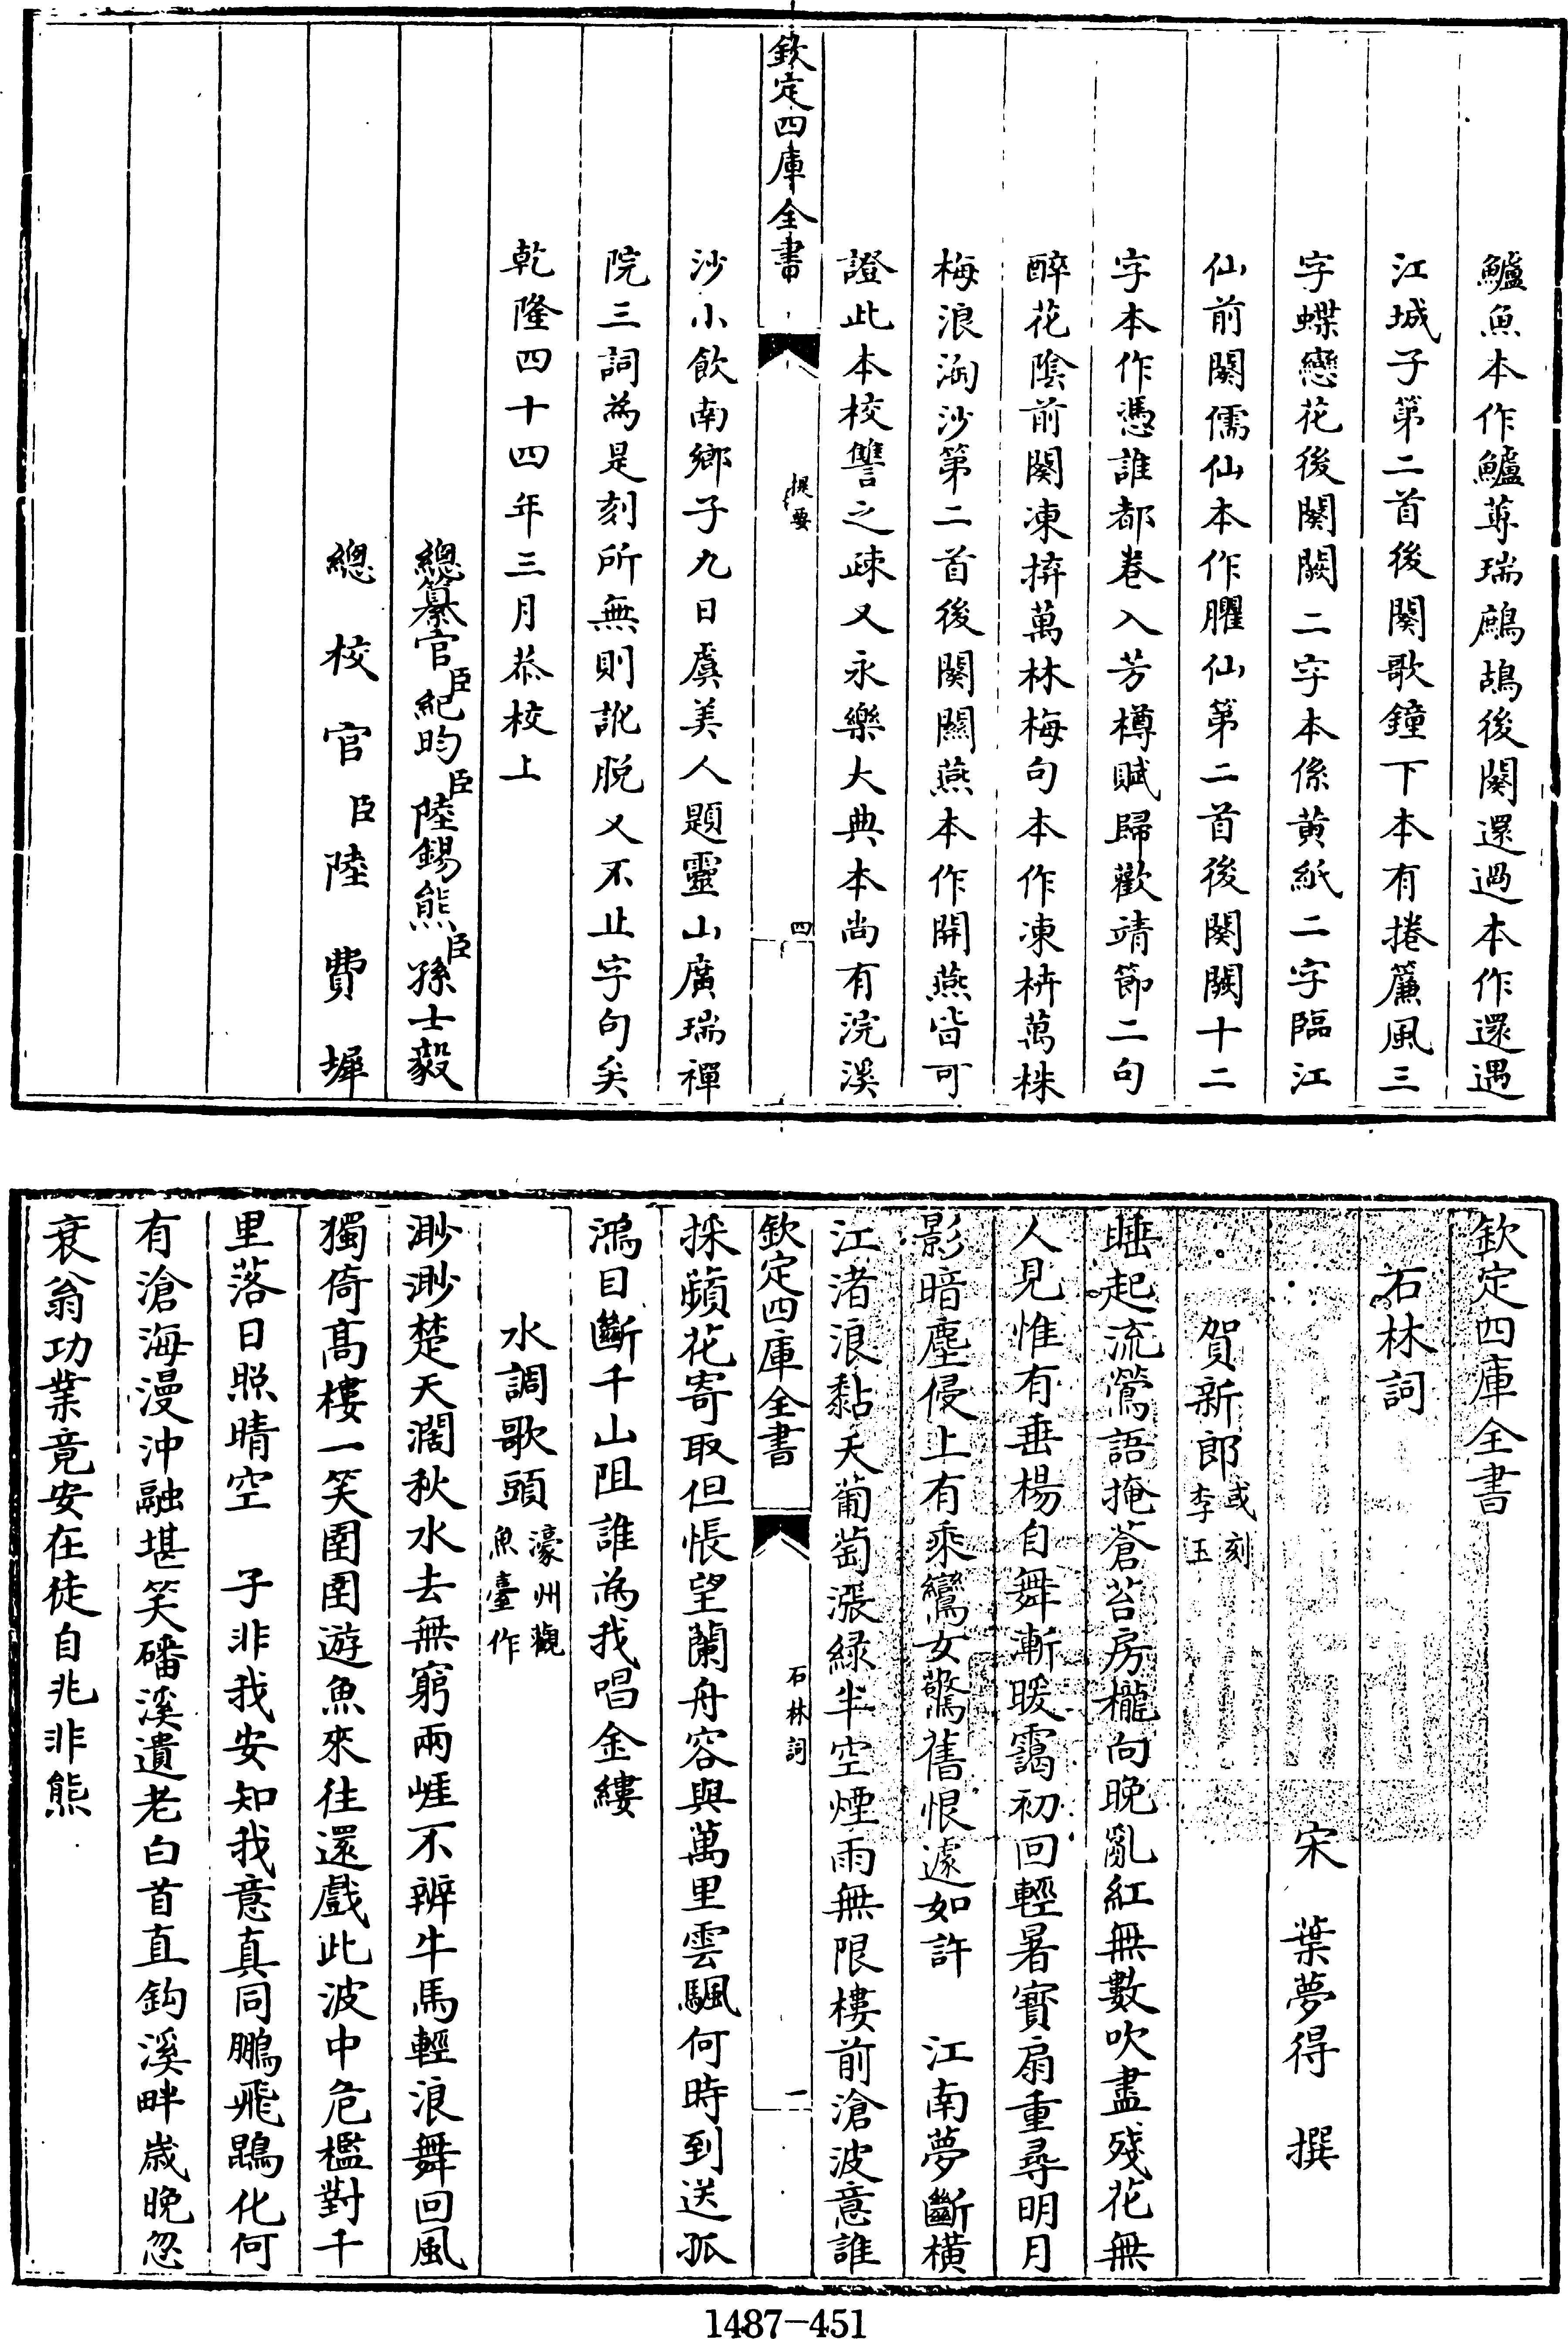 鱸魚本作鱸蓴瑞鷓鴣後闋還過本作還遇
江城子第二首後闋歌鐘下本有捲簾風三
字蝶戀花後闋闕二字本係黄紙二字臨江
仙前闋儒仙本作臞仙第二首後闋闕十二
字本作憑誰都卷入芳樽賦歸歡靖節二句
醉花陰前闋凍拚萬林梅句本作凍栟萬株
梅浪淘沙第二首後闋闗燕本作開燕皆可
證此本校讐之疎又永樂大典本尚有浣溪
欽定四庫全書
提要
四
沙小飲南鄉子九日虞美人題靈山廣瑞禪
院三詞為是刻所無則訛脱又不止字句矣
乾隆四十四年三月恭校上
總纂官臣紀昀臣陸錫熊臣孫士毅
總校官臣陸費墀
欽定四庫全書
石林詞
宋 葉夢得 撰
賀新郎或刻李玉
睡起流鶯語掩蒼苔房櫳向晚亂紅無數吹盡殘花無
人見惟有垂楊自舞漸暖靄初回輕暑寶扇重尋明月
影暗塵侵上有乘鸞女驚舊恨遽如許 江南夢斷橫
江渚浪黏天葡萄漲緑半空煙雨無限樓前滄波意誰
欽定四庫全書
石林詞
一
採蘋花寄取但悵望蘭舟容與萬里雲颿何時到送孤
鴻目斷千山阻誰為我唱金縷
水調歌頭濠州觀魚臺作
渺渺楚天濶秋水去無窮兩崖不辨牛馬輕浪舞回風
獨倚髙樓一笑圉圉遊魚來往還戲此波中危檻對千
里落日照晴空 子非我安知我意真同鵬飛鷃化何
有滄海漫沖融堪笑磻溪遺老白首直鈎溪畔歲晚忽
衰翁功業竟安在徒自兆非熊
1487-451